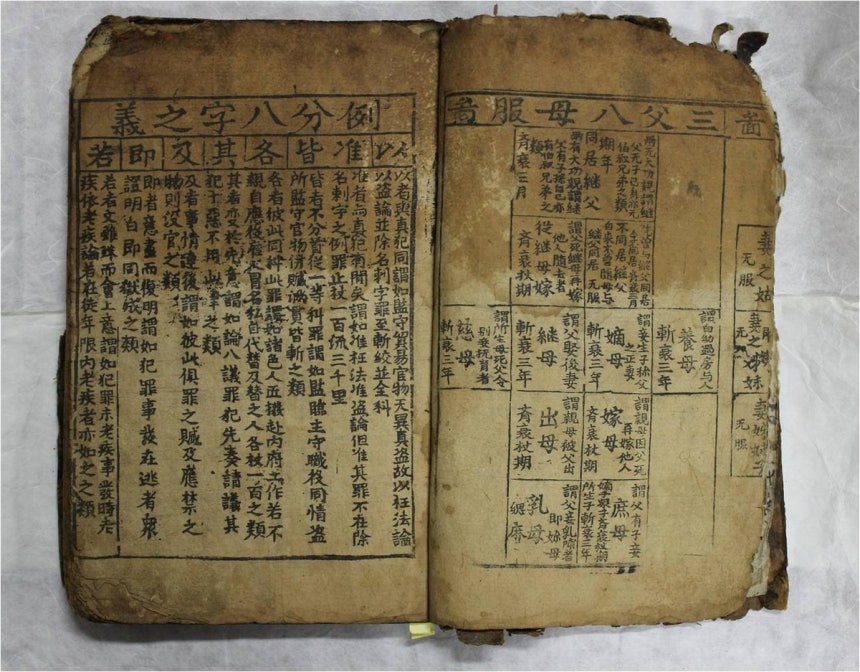 啚
妻之姑
无服
妻之姊妹
无服
三父八母服啚
同居継父
期年
齊衰三月
不同居継父
自來不曽随母与
継父同居 无服
従継母嫁
謂父死継母再嫁
他人随去者
齊衰杖期
養母
謂自幼過房与人
斬衰三年
嫡母
謂妾生子称父
之正妻
斬衰三年
継母
謂父娶後妻
斬衰三年
慈母
謂所生母死父令
別妾撫育者
斬衰三年
嫁母
謂親母因父死
再嫁他人
齊衰杖期
出母
謂親母被父出
齊衰杖期
庶母
謂父有子妾
嫡子衆子齊衰杖期
所生子斬衰三年
乳母
謂父妾乳哺者
即嬭母
緦麻
例分八字之義
以
准
皆
各
其
及
即
若
以者與真犯同謂如監守貿易官物无異真盗故以枉法論
以盗論並除名刺字罪至斬絞並全科
准者與真犯有間矣謂如准枉法准盗論但准其罪不在除
名刺字之例罪止杖一百流三千里
皆者不分首從一等科罪謂如監臨主守職役同情盗
所監守官物併贓滿貫皆斬之類
各者彼此同科此罪謂如諸色人匠撥赴内府工作若不
親自應役雇人冒名私自代替及替之人各杖一百之類
其者变於先意謂如論八議罪犯先奏請議其
犯十惡不用此律之類
及者事情連後謂如彼此俱罪之贓及應禁之
物則没官之類
即者意盡而復明謂如犯罪事發在逃者衆
證明白即同獄成之類
若者文雖殊而會上意謂如犯罪未老疾事發時老
疾依老疾論若在徒年限内老疾者亦如之之類